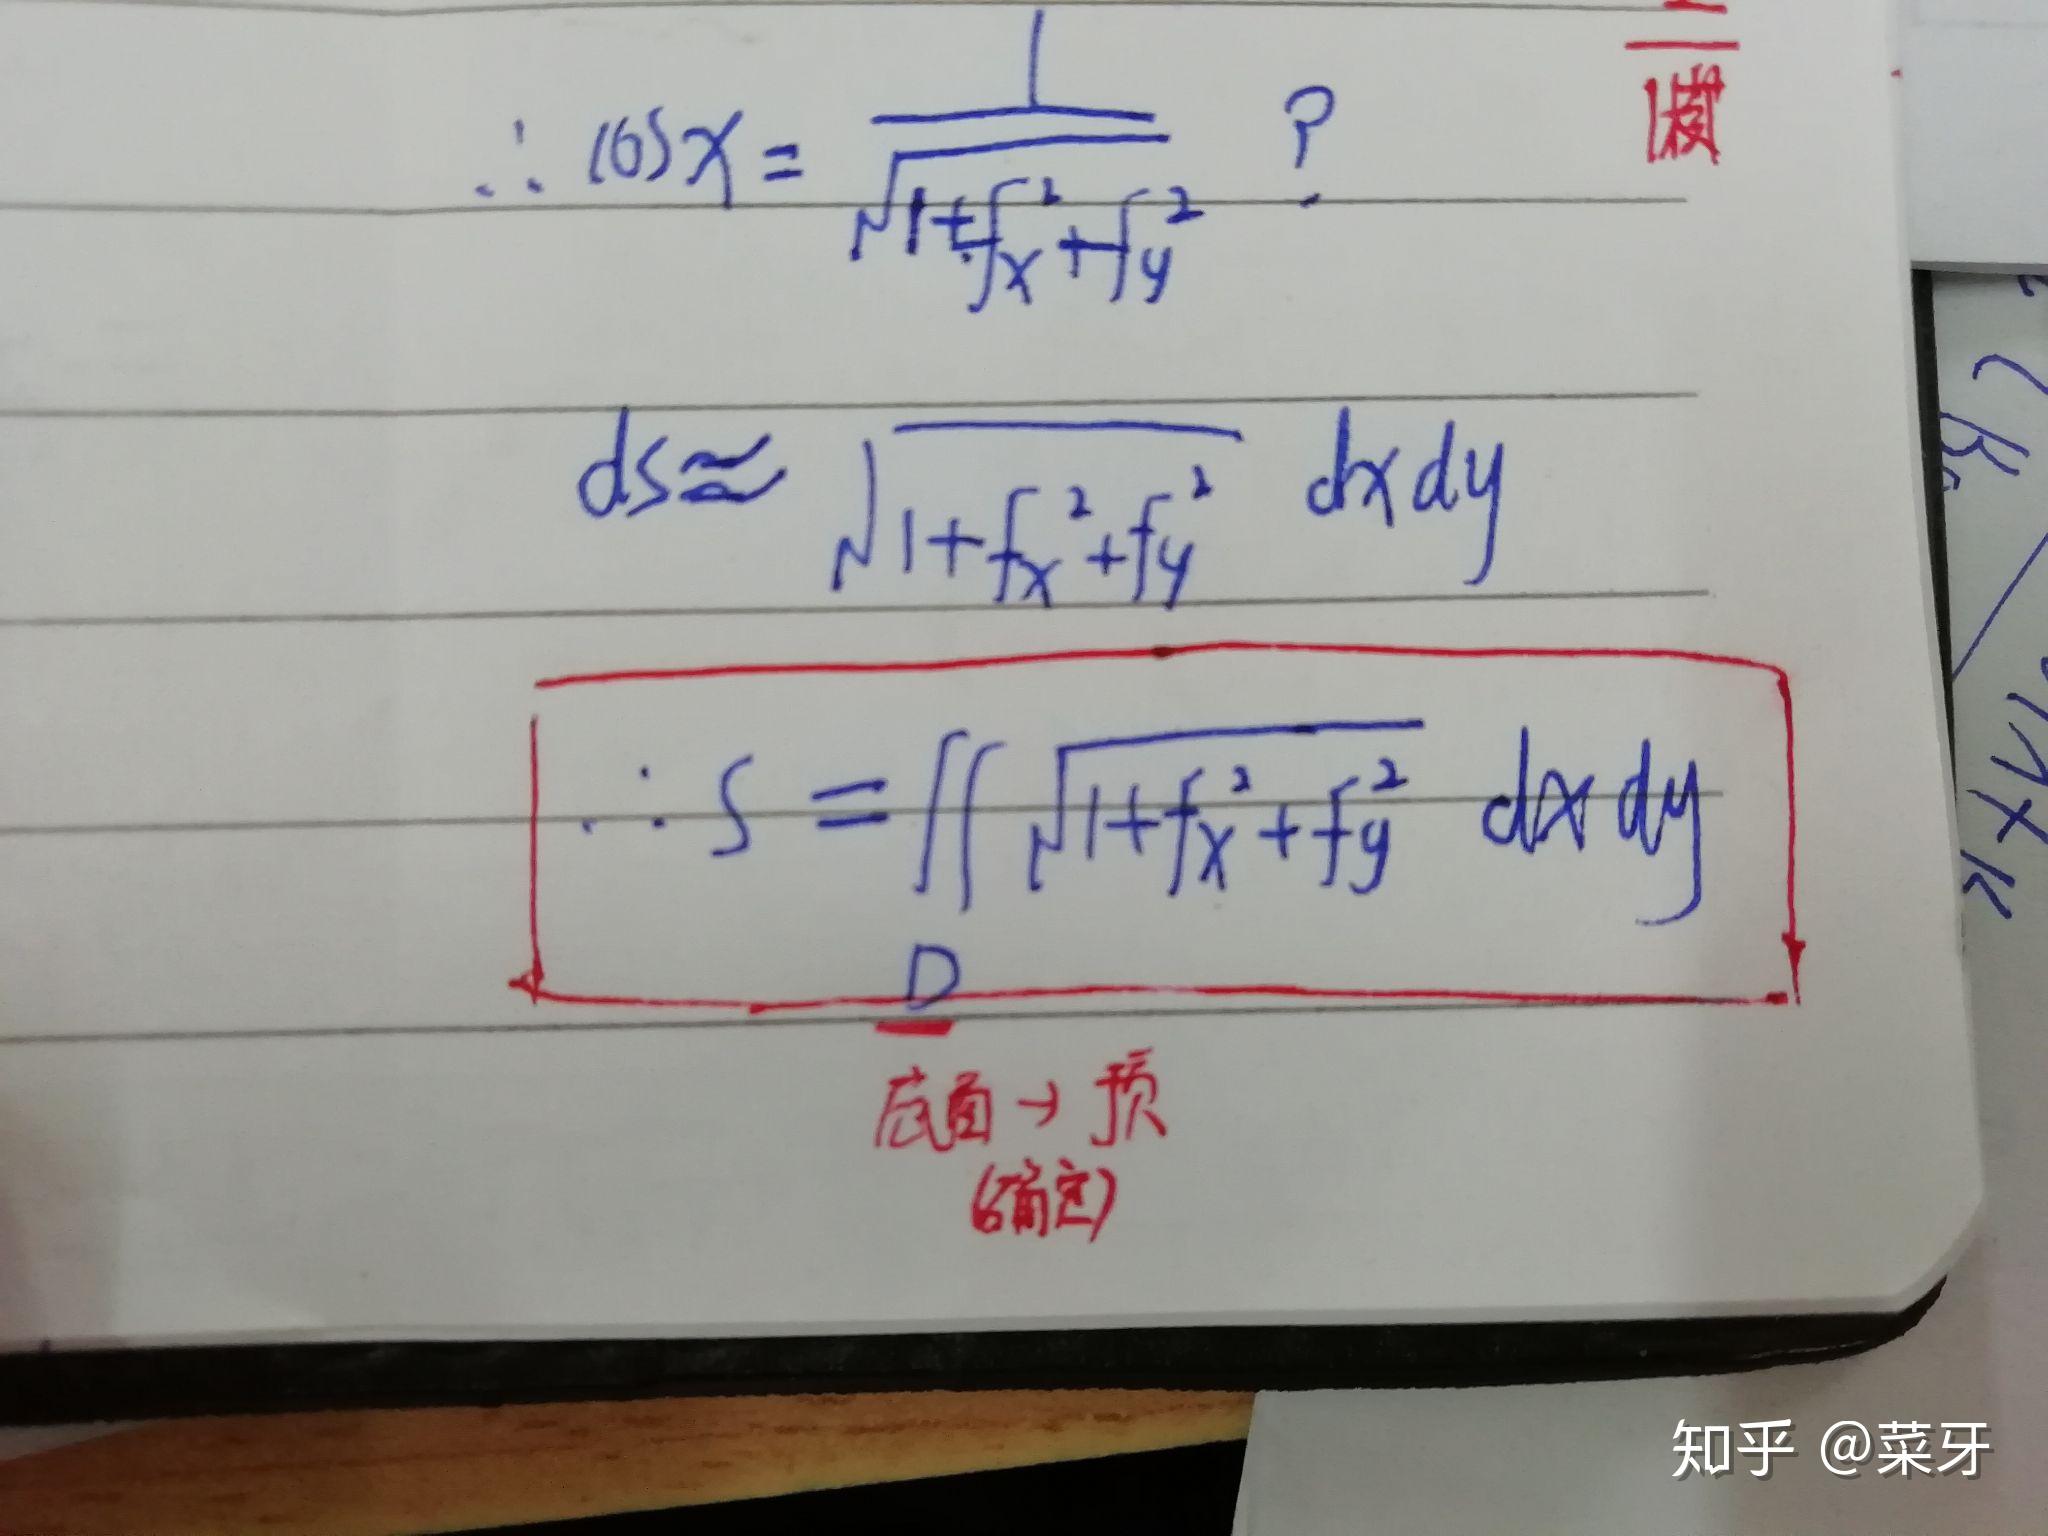 ∴ cos x = 1/√(1+fx²+fy²) ?
模
ds ≈ √(1+fx²+fy²) dxdy
∴ S = ∬ √(1+fx²+fy²) dxdy
D
底面 → 顶
(确定)
知乎 @菜牙